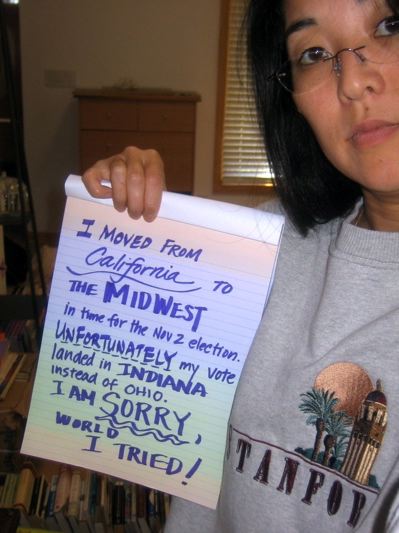 I MOVED FROM
California TO
THE MIDWEST
in time for the Nov 2 election.
UNFORTUNATELY my vote
landed in INDIANA
instead of OHIO.
I AM SORRY,
WORLD
I TRIED!
STANFOR